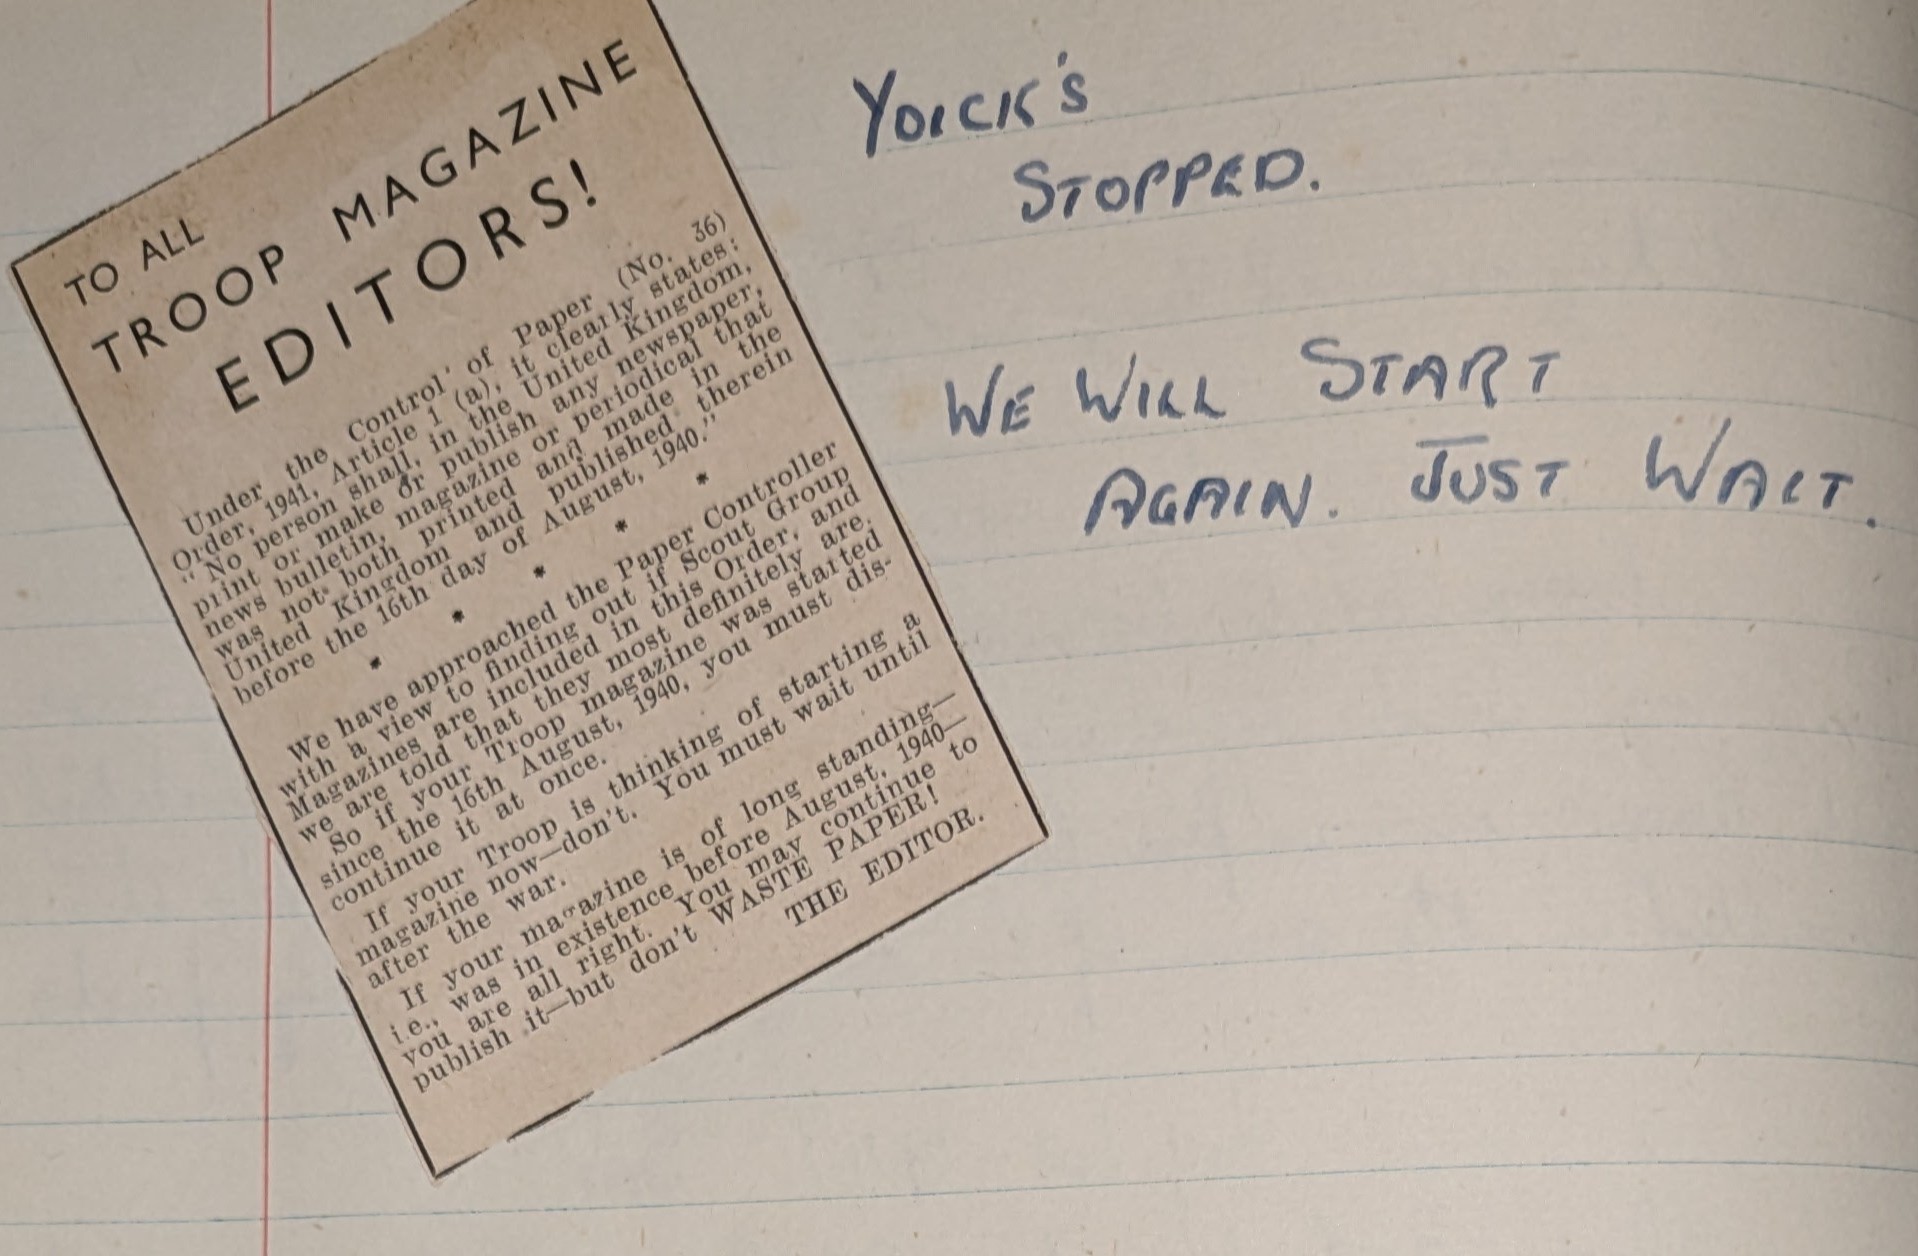 TO ALL
TROOP MAGAZINE
EDITORS!
Under the Control of Paper (No. 36)
Order, 1941, Article 1 (a), it clearly states:
"No person shall, in the United Kingdom,
print or make or publish any newspaper,
news bulletin, magazine or periodical that
was not both printed and made in the
United Kingdom and published therein
before the 16th day of August, 1940."
* * * * *
We have approached the Paper Controller
with a view to finding out if Scout Group
Magazines are included in this Order, and
we are told that they most definitely are.
So if your Troop magazine was started
since the 16th August, 1940, you must dis-
continue it at once.
If your Troop is thinking of starting a
magazine now—don't. You must wait until
after the war.
If your magazine is of long standing—
i.e., was in existence before August, 1940—
you are all right. You may continue to
publish it—but don't WASTE PAPER!
THE EDITOR.
YOICK'S
STOPPED.
WE WILL START
AGAIN. JUST WAIT.